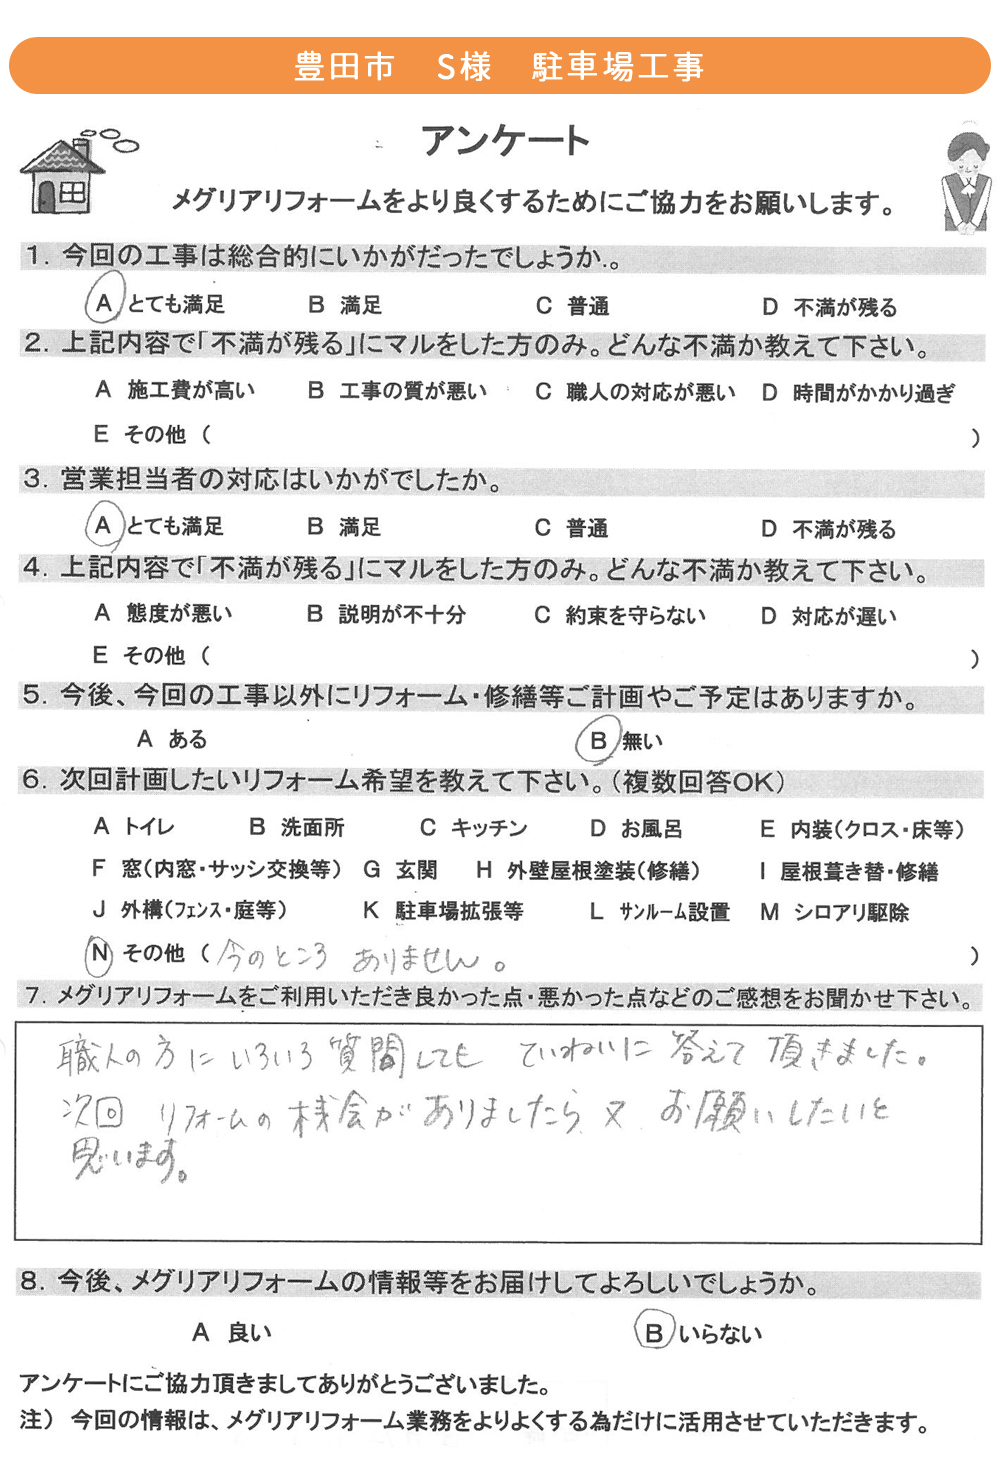 豊田市　S様　駐車場工事
アンケート
メグリアリフォームをより良くするためにご協力をお願いします。
1. 今回の工事は総合的にいかがだったでしょうか.。
A とても満足　B 満足　C 普通　D 不満が残る
2. 上記内容で「不満が残る」にマルをした方のみ。どんな不満か教えて下さい。
A 施工費が高い　B 工事の質が悪い　C 職人の対応が悪い　D 時間がかかり過ぎ
E その他（　）
3. 営業担当者の対応はいかがでしたか。
A とても満足　B 満足　C 普通　D 不満が残る
4. 上記内容で「不満が残る」にマルをした方のみ。どんな不満か教えて下さい。
A 態度が悪い　B 説明が不十分　C 約束を守らない　D 対応が遅い
E その他（　）
5. 今後、今回の工事以外にリフォーム・修繕等ご計画やご予定はありますか。
A ある　B 無い
6. 次回計画したいリフォーム希望を教えて下さい。（複数回答OK）
A トイレ　B 洗面所　C キッチン　D お風呂　E 内装（クロス・床等）
F 窓（内窓・サッシ交換等）　G 玄関　H 外壁屋根塗装（修繕）　I 屋根葺き替・修繕
J 外構（フェンス・庭等）　K 駐車場拡張等　L サンルーム設置　M シロアリ駆除
N その他（今のところ ありません。）
7. メグリアリフォームをご利用いただき良かった点・悪かった点などのご感想をお聞かせ下さい。
職人の方に いろいろ 質問しても ていねいに 答えて 頂きました。
次回 リフォームの 機会が ありましたら 又 お願いしたいと
思います。
8. 今後、メグリアリフォームの情報等をお届けしてよろしいでしょうか。
A 良い　B いらない
アンケートにご協力頂きましてありがとうございました。
注） 今回の情報は、メグリアリフォーム業務をよりよくする為だけに活用させていただきます。